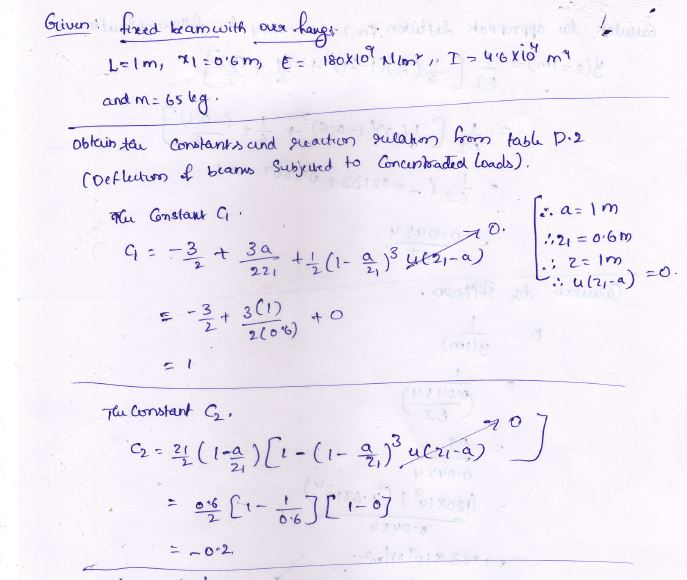 Given: fixed beam with over hangs.
L = 1m, x1 = 0.6m, E = 180×10⁹ N/m², I = 4.6×10⁴ m⁴
and m = 65 kg.
Obtain the constants and reaction relation from table D.2
(Deflection of beams Subjected to Concentrated loads).
The Constant C₁.
C₁ = -3/2 + 3a/2z₁ + 1/2 (1 - a/z₁)³ u(z₁-a) → 0.
[∴ a = 1m
∴ z₁ = 0.6m
∴ z = 1m
∴ u(z₁-a) = 0.
= -3/2 + 3(1)/2(0.6) + 0
= 1
The Constant C₂.
C₂ = z1/2 (1 - a/z₁) [1 - (1 - a/z₁)³ u(z₁-a) → 0 ]
= 0.6/2 [1 - 1/0.6] [1 - 0]
= -0.2